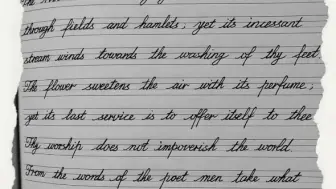 the
through fields and hamlets; yet its incessant
stream winds towards the washing of thy feet
The flower sweetens the air with its perfume;
yet its last service is to offer itself to thee
Thy worship does not impoverish the world.
From the words of the poet men take what